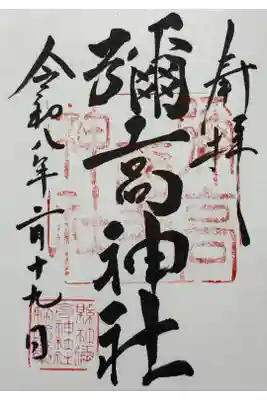 奉拝
彌高神社
令和八年二月十九日